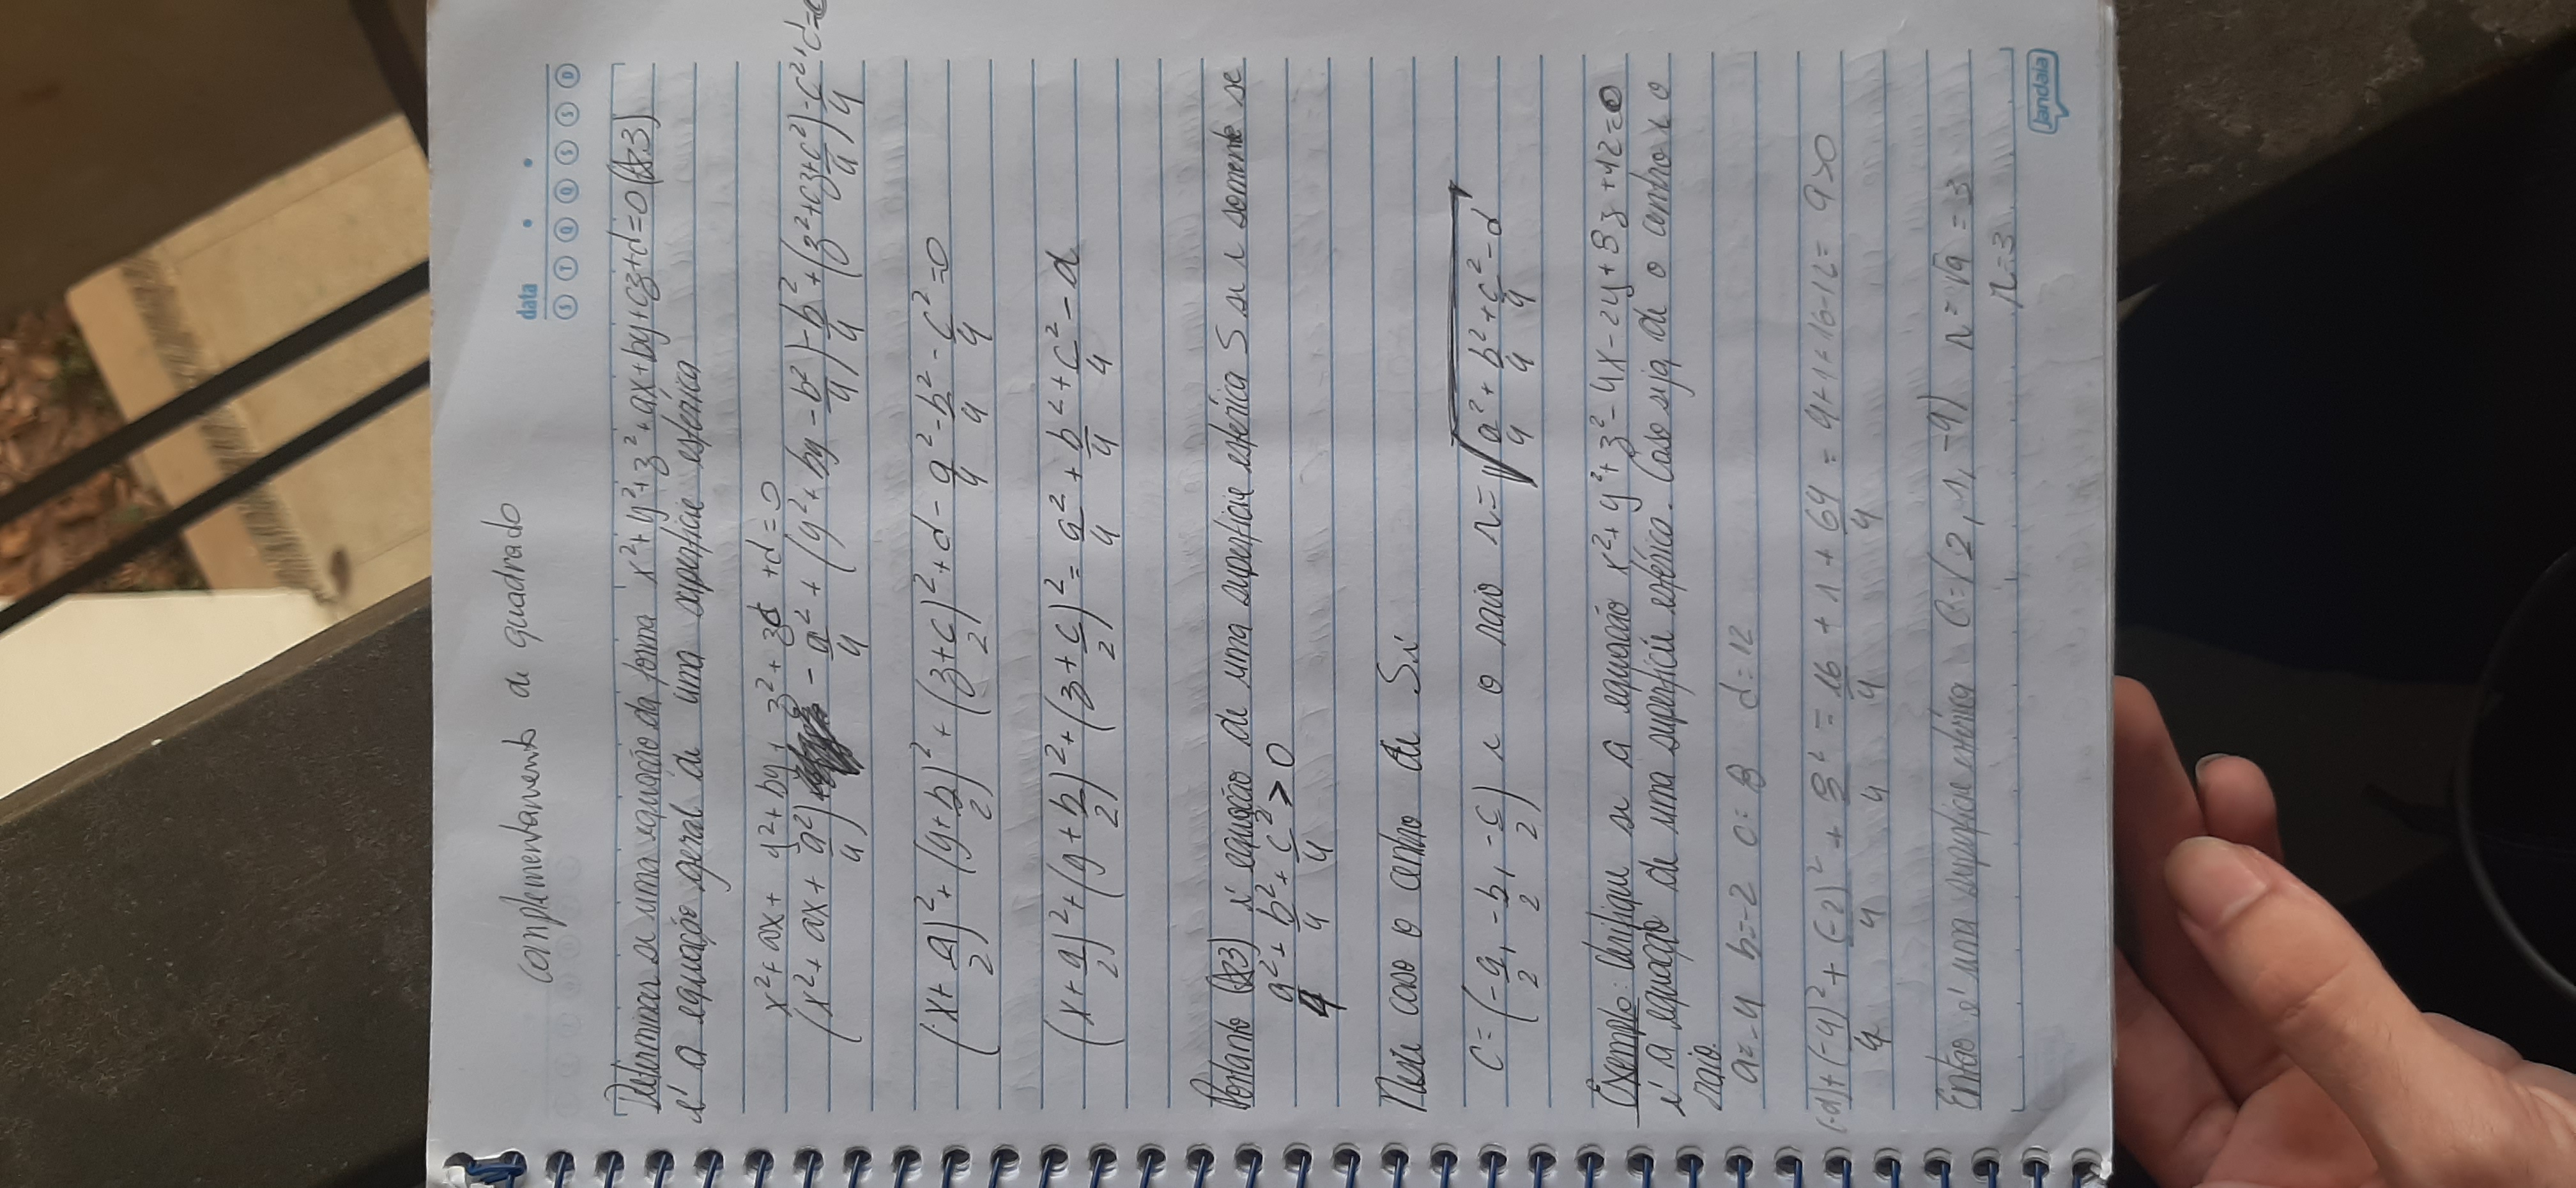 data
S T Q Q S S D
Complementamento de quadrado
Determinar se uma equação da forma x²+y²+z²+ax+by+cz+d=0 (*3)
é a equação geral de uma superfície esférica
x²+ax+ y²+by+ z²+zc +d=0
(x²+ax+a²/4) - a²/4 + (y²+by-b²/4) - b²/4 + (z²+cz+c²/4) - c²/4 + d=0
(x+a/2)² + (y+b/2)² + (z+c/2)² + d - a²/4 - b²/4 - c²/4 = 0
(x+a/2)² + (y+b/2)² + (z+c/2)² = a²/4 + b²/4 + c²/4 - d
Portanto (*3) é equação de uma superfície esférica S se e somente se
a²/4 + b²/4 + c²/4 > 0
Neste caso o centro de S é
C = (-a/2, -b/2, -c/2) e o raio r = √(a²/4 + b²/4 + c²/4 - d)
Exemplo: Verifique se a equação x²+y²+z²-4x-2y+8z+12=0
é a equação de uma superfície esférica. Caso seja dê o centro e o
raio.
a=-4 b=-2 c=8 d=12
(-d)+(-4)²/4 + (-2)²/4 + 8²/4 = 16/4 + 1 + 64/4 = 4+1+16-12= 9>0
Então é uma superfície esférica C=(2, 1, -4) r=√9 = 3
r=3
Jandaia